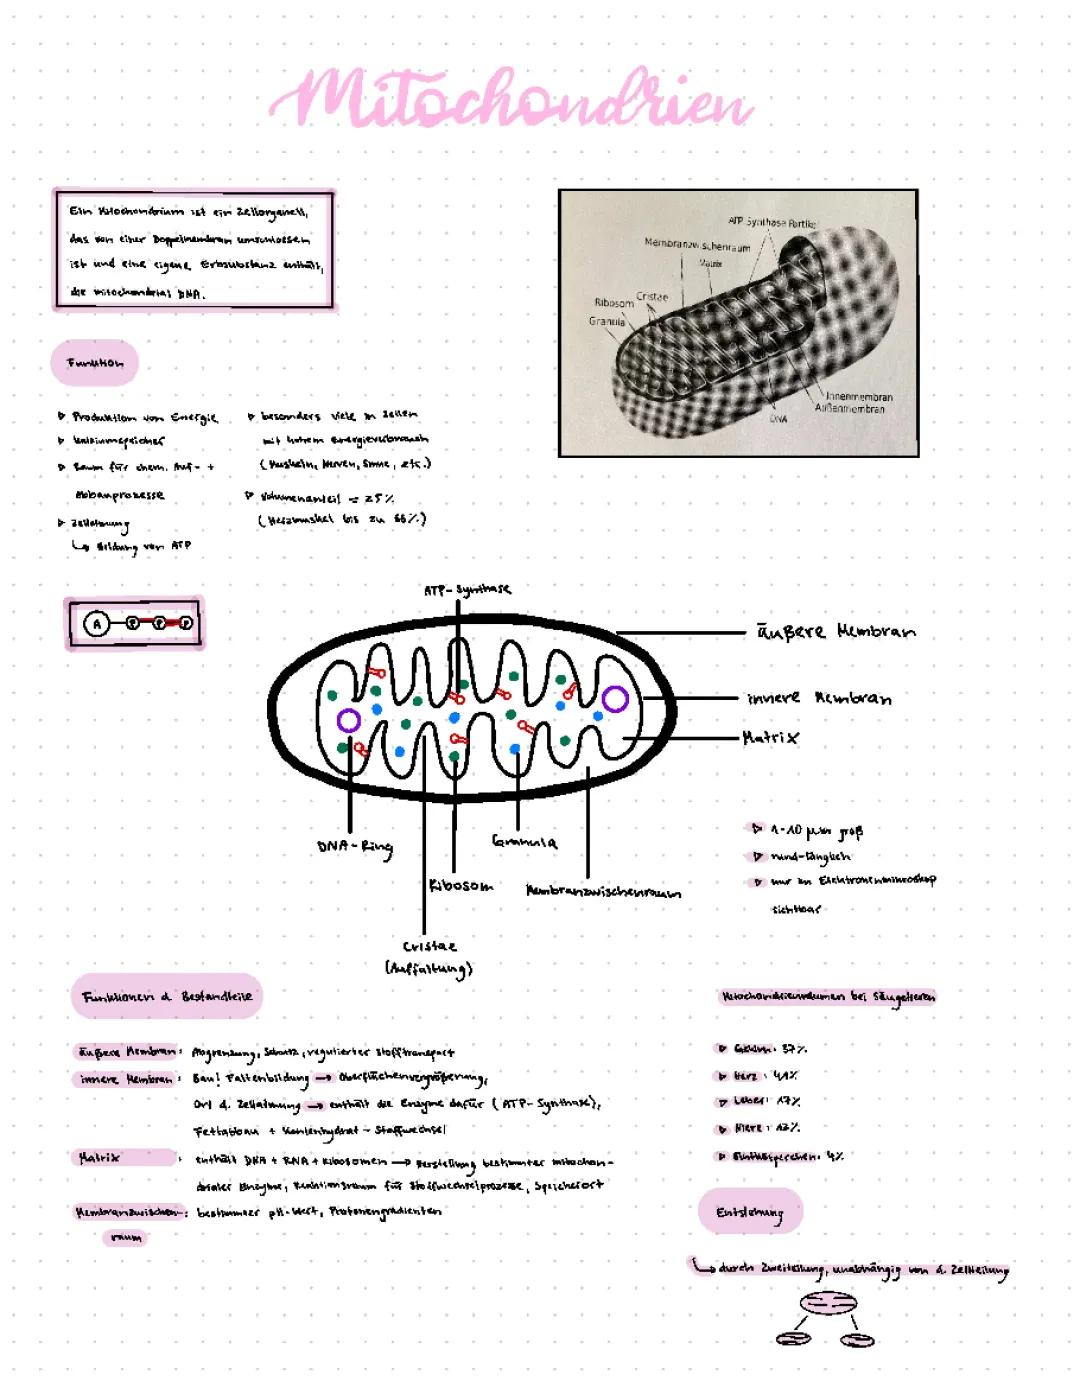 Mitochondrien
Ein Mitochondrium ist ein Zellorganell,
das von einer Doppelmembran umschlossen
ist und eine eigene Erbsubstanz enthält,
die mitochondrial DNA.
ATP Synthase Partikel
Membranzwischenraum
Matrix
Cristae
Ribosom
Granula
Innenmembran
Außenmembran
DNA
Funktion
▷ Produktion von Energie
▷ Kalziumspeicher
▷ Raum für chem. Auf- +
Abbauprozesse
▷ Zellatmung
↳ Bildung von ATP
▷ besonders viele in Zellen
mit hohem Energieverbrauch
(Muskeln, Nerven, Sinne, etc.)
▷ Volumenanteil = 25%
(Herzmuskel bis zu 36%)
A P P P
ATP-Synthase
äußere Membran
innere Membran
Matrix
DNA-Ring
Granula
Ribosom
Membranzwischenraum
Cristae
(Auffaltung)
▷ 1-10 µm groß
▷ rund-länglich
▷ nur im Elektronenmikroskop
sichtbar
Funktionen d. Bestandteile
äußere Membran: Abgrenzung, Schutz, regulierter Stofftransport
innere Membran: Bau! Faltenbildung → Oberflächenvergrößerung,
Ort d. Zellatmung → enthält die Enzyme dafür (ATP-Synthase),
Fettabbau + Kohlenhydrat-Stoffwechsel
Matrix: enthält DNA + RNA + Ribosomen → Herstellung bestimmter mitochon-
drialer Enzyme, Reaktionsraum für Stoffwechselprozesse, Speicherort
Membranzwischen-: bestimmter pH-Wert, Protonengradienten
raum
Mitochondrienvolumen bei Säugetieren
▷ Gehirn: 37%
▷ Herz: 41%
▷ Leber: 17%
▷ Niere: 12%
▷ 4%
Entstehung
↳ durch Zweiteilung, unabhängig von d. Zellteilung